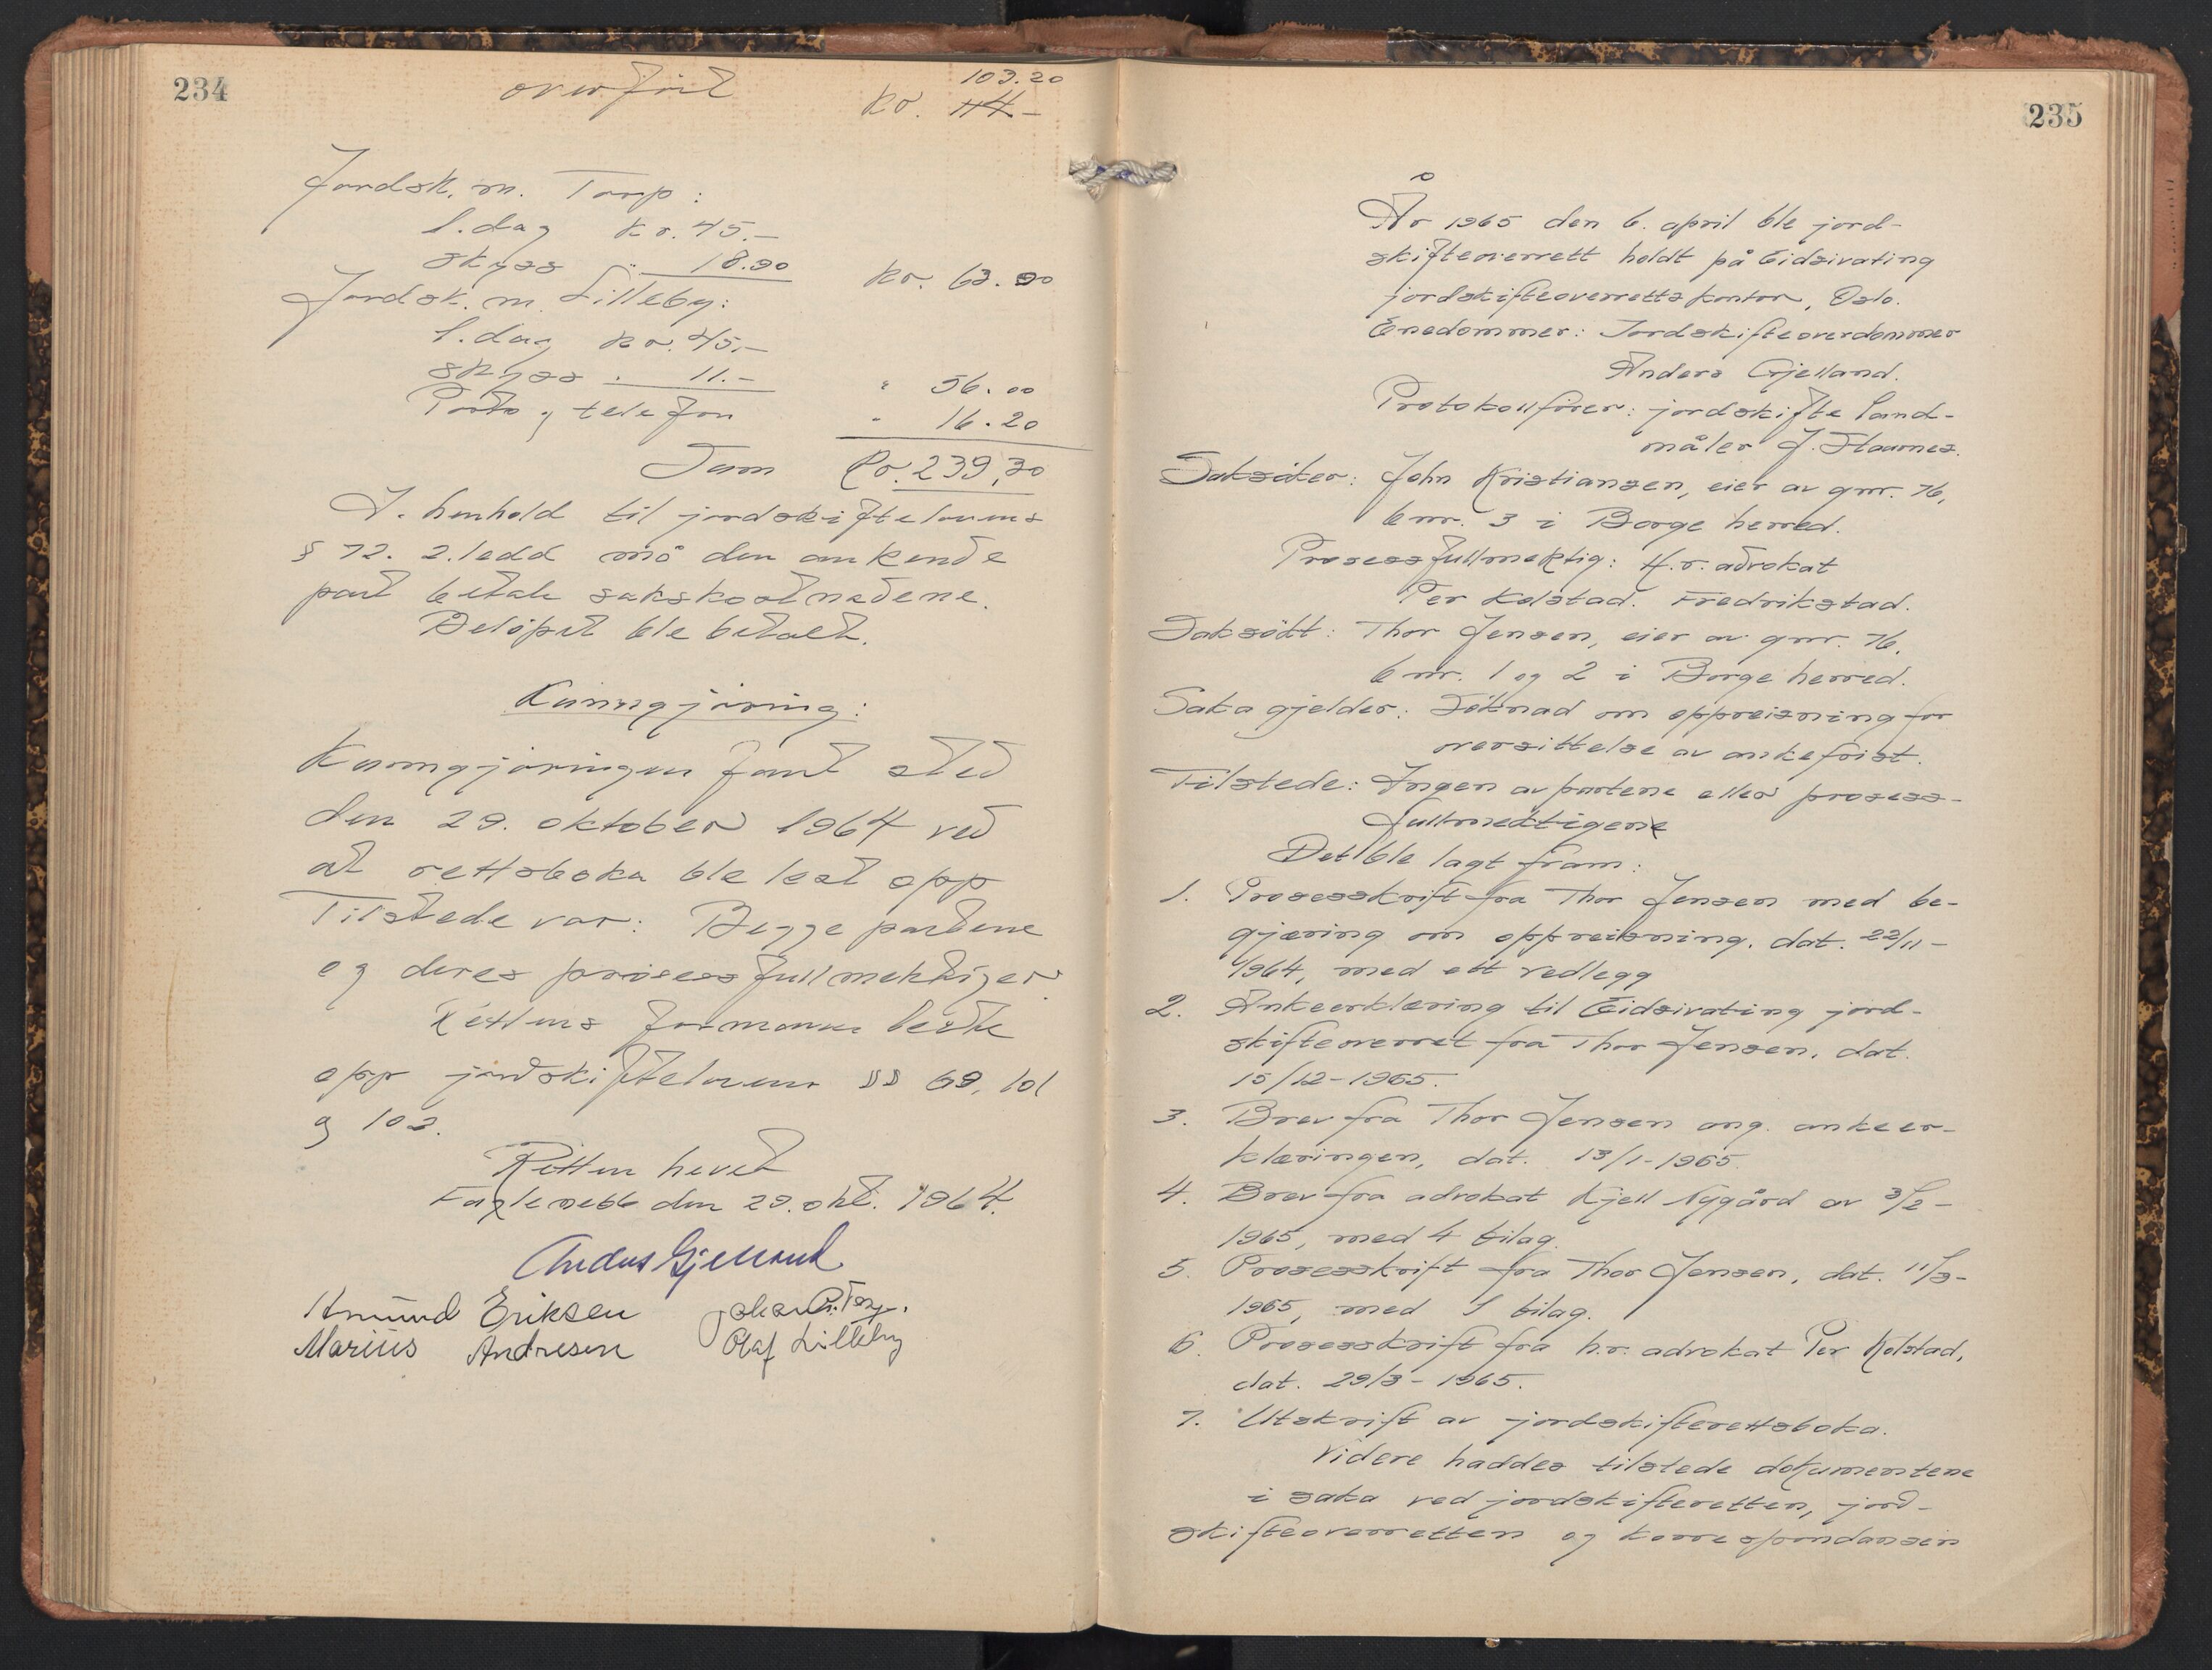 234
overført
103.20
kr. 44 -
Jordsk. m. Torp:
1. dag kr. 45.-
skyss " 18.90
kr. 63.90
Jordsk. m. Lilleby:
1. dag kr. 45.-
skyss . 11.-
" 56.00
Porto og telefon
" 16.20
Sum kr. 239,30
I. henhold til jordskiftelovens
§ 72. 2. ledd må den ankende
part betale sakskostnadene.
Beløpet ble betalt.
Kunngjøring:
Kunngjøringen fant sted
den 29. oktober 1964 ved
at rettsboka ble lest opp
Tilstede var: Begge partene
og deres prosessfullmektiger.
Rettens formann leste
opp jordskiftelovens §§ 69, 101
og 102.
Retten hevet
den 29. okt. 1964.
Anders Gjelland
Amund Eriksen Johan Torp.
Marius Andresen Olaf Lilleby
235
År 1965 den 6. april ble jord-
skifteoverrett holdt på Eidsivating
jordskifteoverretts kontor, Oslo.
Enedommer: Jordskifteoverdommer
Anders Gjelland.
Protokollfører: jordskifte land-
måler J.
Saksøker: John Kristiansen, eier av gnr. 76,
bnr. 3 i Borge herred.
Prosessfullmektig: H.r. advokat
Per Kolstad. Fredrikstad.
Saksøkt: Thor Jensen, eier av gnr. 76,
bnr. 1 og 2 i Borge herred.
Saka gjelder: Søknad om oppreisning for
oversittelse av ankefrist.
Tilstede: Ingen av partene eller prosess-
fullmektigene
Det ble lagt fram:
1. Prosesskrift fra Thor Jensen med be-
gjæring om oppreisning, dat. 22/11-
1964, med ett vedlegg
2. Ankeerklæring til Eidsivating jord-
skifteoverret fra Thor Jensen, dat.
15/12-1965.
3. Brev fra Thor Jensen ang. ankeer-
klæringen, dat. 13/1-1965.
4. Brev fra advokat Kjell Nygård av 3/2-
1965, med 4 bilag.
5. Prosesskrift fra Thor Jensen, dat. 11/3-
1965, med 1 bilag.
6. Prosesskrift fra h.r. advokat Per Kolstad,
dat. 29/3-1965.
7. Utskrift av jordskifterettsboka.
Videre haddes tilstede dokumentene
i saka ved jordskifteretten, jord-
skifteoverretten og korrespondansen